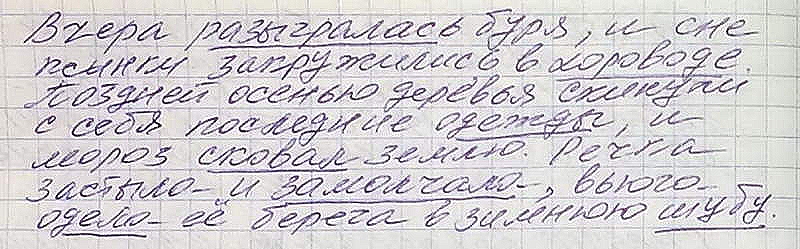 Вчера разыгралась буря, и сне
жинки закружились в хороводе.
Поздней осенью деревья скинули
с себя последние одежды, и
мороз сковал землю. Речка
застыла и замолчала, вьюга
одела её берега в зимнюю шубу.